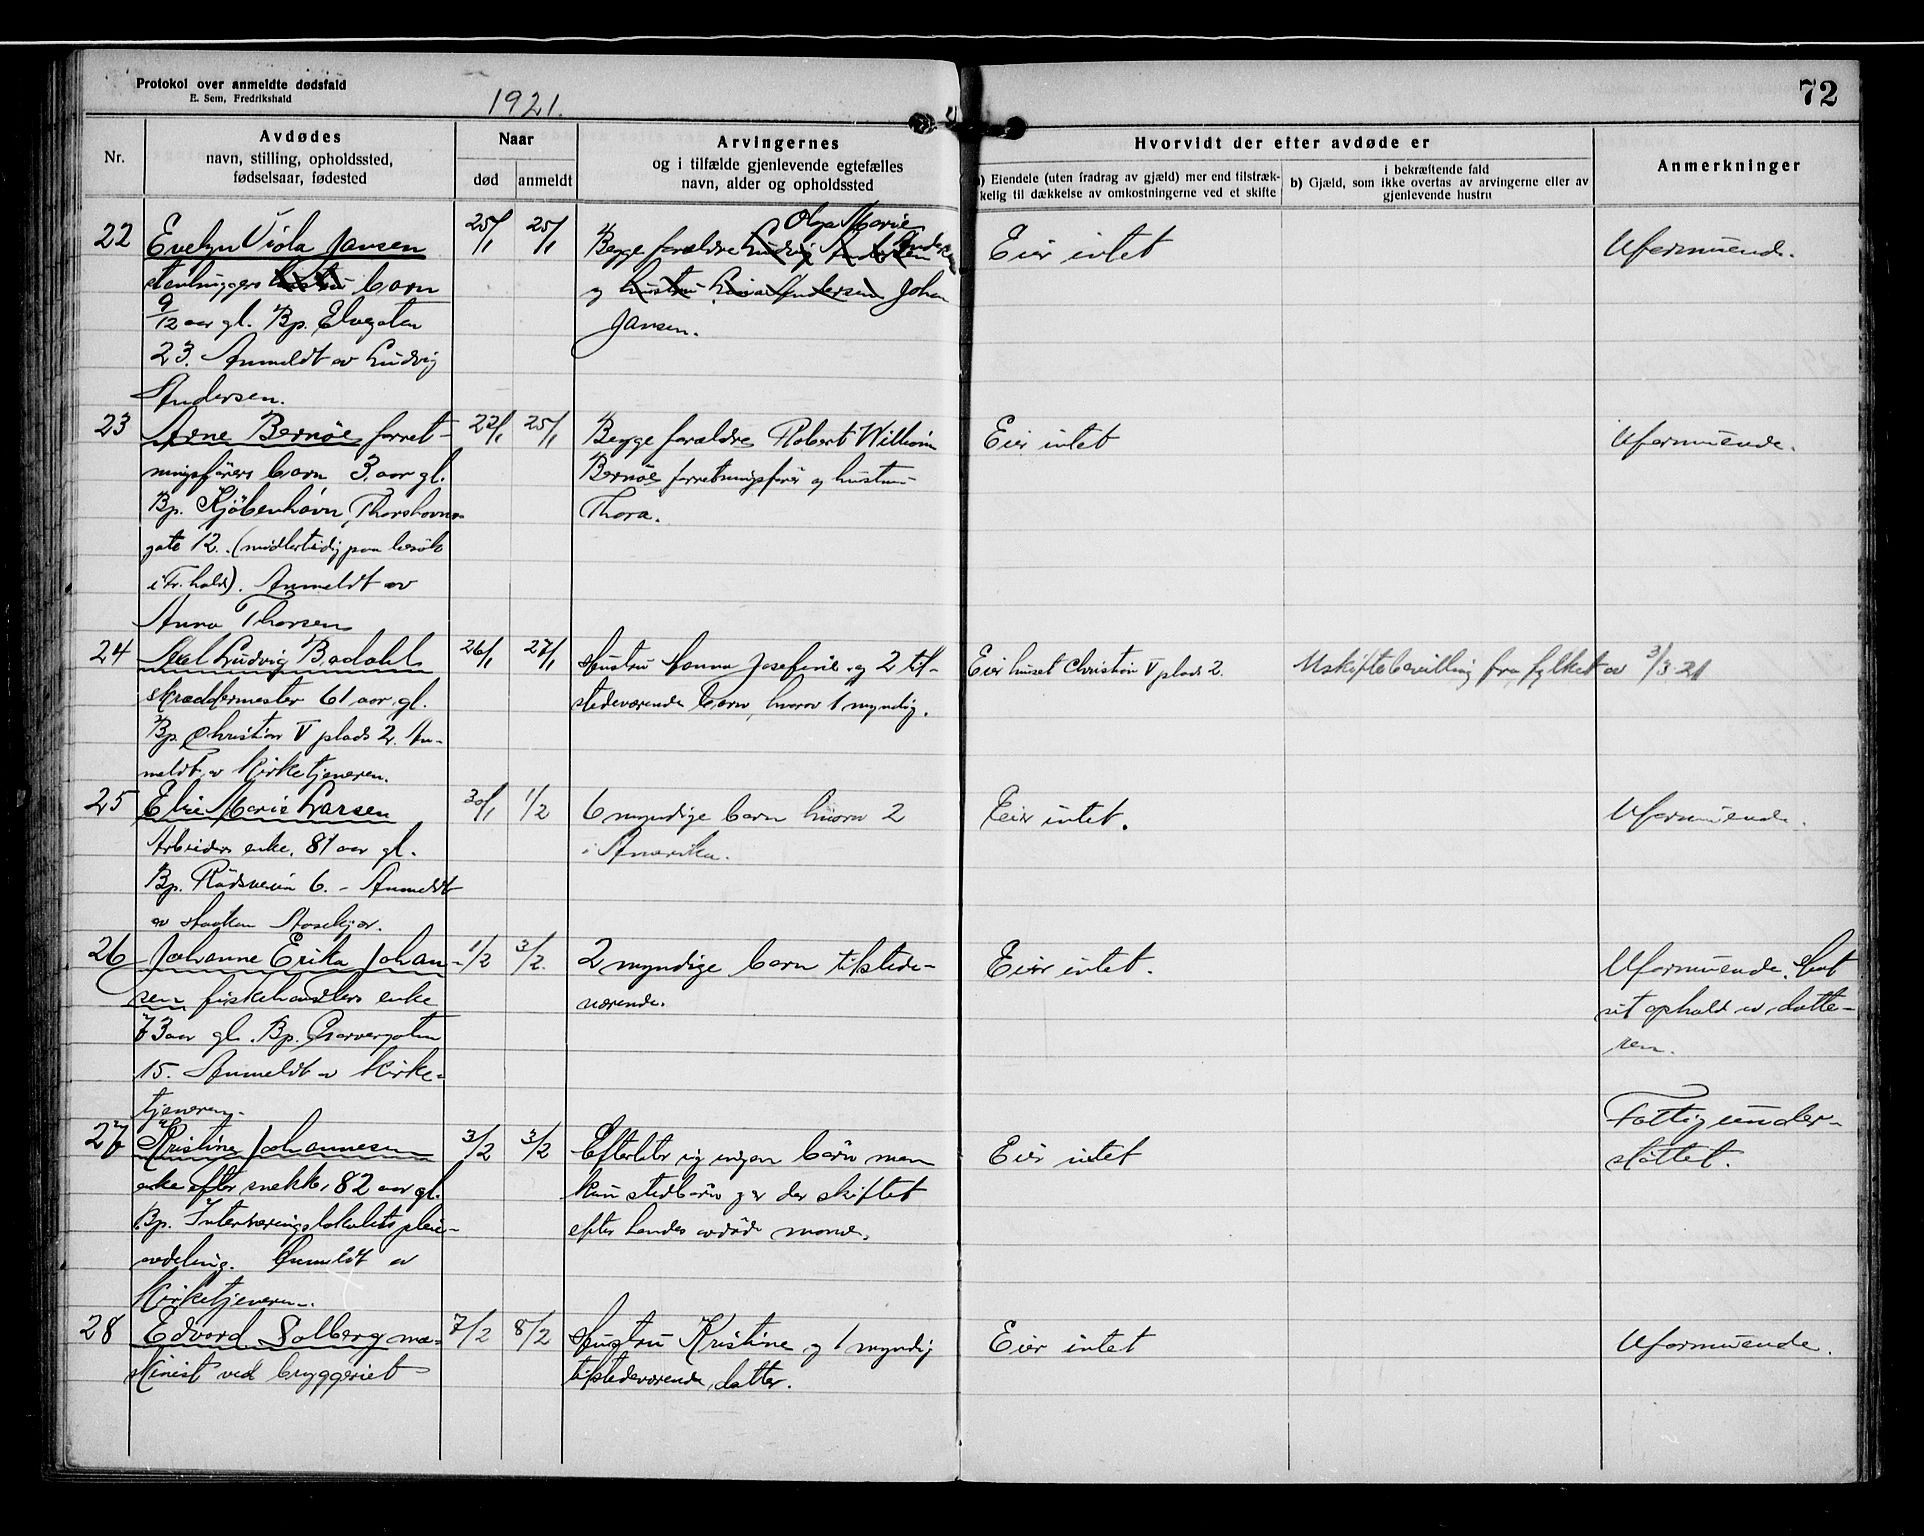 Protokol over anmeldte dødsfald
E. Sem, Fredrikshald
1921.
72
Nr.
Avdødes
navn, stilling, opholdssted,
fødselsaar, fødested
Naar
død
anmeldt
Arvingernes
og i tilfælde gjenlevende egtefælles
navn, alder og opholdssted
Hvorvidt der efter avdøde er
a) Eiendele (uten fradrag av gjæld) mer end tilstræk-
kelig til dækkelse av omkostningerne ved et skifte
i bekræftende fald
b) Gjæld, som ikke overtas av arvingerne eller av
gjenlevende hustru
Anmerkninger
22
Evelyn Viola Jansen
stenhuggers hustru barn
9/12 aar gl. Bp. Elvegaten
23. Anmeldt av Ludvig
Andersen.
25/1
25/1
Olga Marie
Begge forældre Ludvig Andersen
og hustru Andersen Johan
Jansen.
Eier intet
Uformuende.
23
Arne Bernøe forret-
ningsførers barn 3 aar gl.
Bp. Kjøbenhavn, Thorshavns-
gate 12. (midlertidig paa besøk
i Fr.hald). Anmeldt av
Anna Thorsen
22/1
25/1
Begge forældre Robert Wilhelm
Bernøe forretningsfører og hustru
Thora.
Eier intet
Uformuende.
24
Axel Ludvig Badahl
skræddermester 61 aar gl.
Bp. Christian V plads 2. An-
meldt av Kirketjeneren.
26/1
27/1
Hustru Hanna Josefine og 2 til-
stedeværende barn, hvorav 1 myndig.
Eier huset Christian V plads 2.
Uskiftebevilling fra fylket av 3/3 21
25
Elise Marie Larsen
Arbeiders enke, 81 aar gl.
Bp. Rødsveien 6. - Anmeldt
av
30/1
1/2
6 myndige barn hvorav 2
i Amerika.
Eier intet.
Uformuende.
26
Johanne Erika Johan-
sen fiskehandlers enke
73 aar gl. Bp. Garvergaten
15. Anmeldt av Kirke-
tjeneren.
1/2
3/2.
2 myndige barn tilstede-
værende.
Eier intet.
Uformuende. Hat
sit ophold av datte-
ren.
27
Kristine Johannesen
enke efter snekker, 82 aar gl.
Bp. Interneringslokalets pleie-
avdeling. Anmeldt av
Kirketjeneren.
3/2
3/2
Efterlater sig ingen barn men
kun stedbarn og er der skiftet
efter hendes avdøde mand.
Eier intet
Fattigunder-
støttet.
28
Edvard Solberg ma-
skinist ved bryggeriet
7/2
8/2
Hustru Kristine og 1 myndig
tilstedeværende datter.
Eier intet
Uformuende.